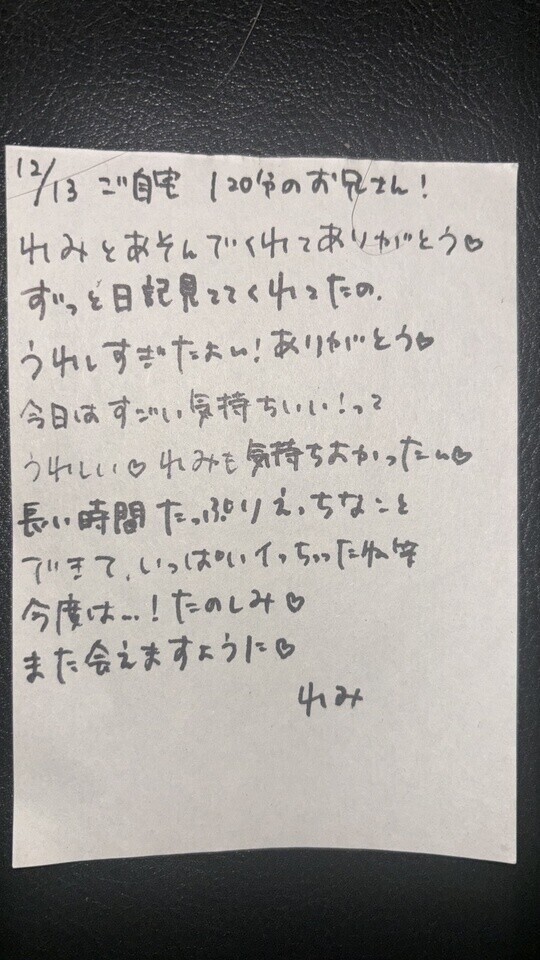 12/13 ご自宅 120分のお兄さん!
れみとあそんでくれてありがとう♡
ずっと日記見ててくれてたの、
うれしすぎたよぃ!ありがとう♡
今日はすごい気持ちいい!って
うれしい♡れみも気持ちよかったぃ♡
長い時間たっぷりえっちなこと
できて、いっぱいイっちゃったね笑
今度は...!たのしみ♡
また会えますように♡
れみ